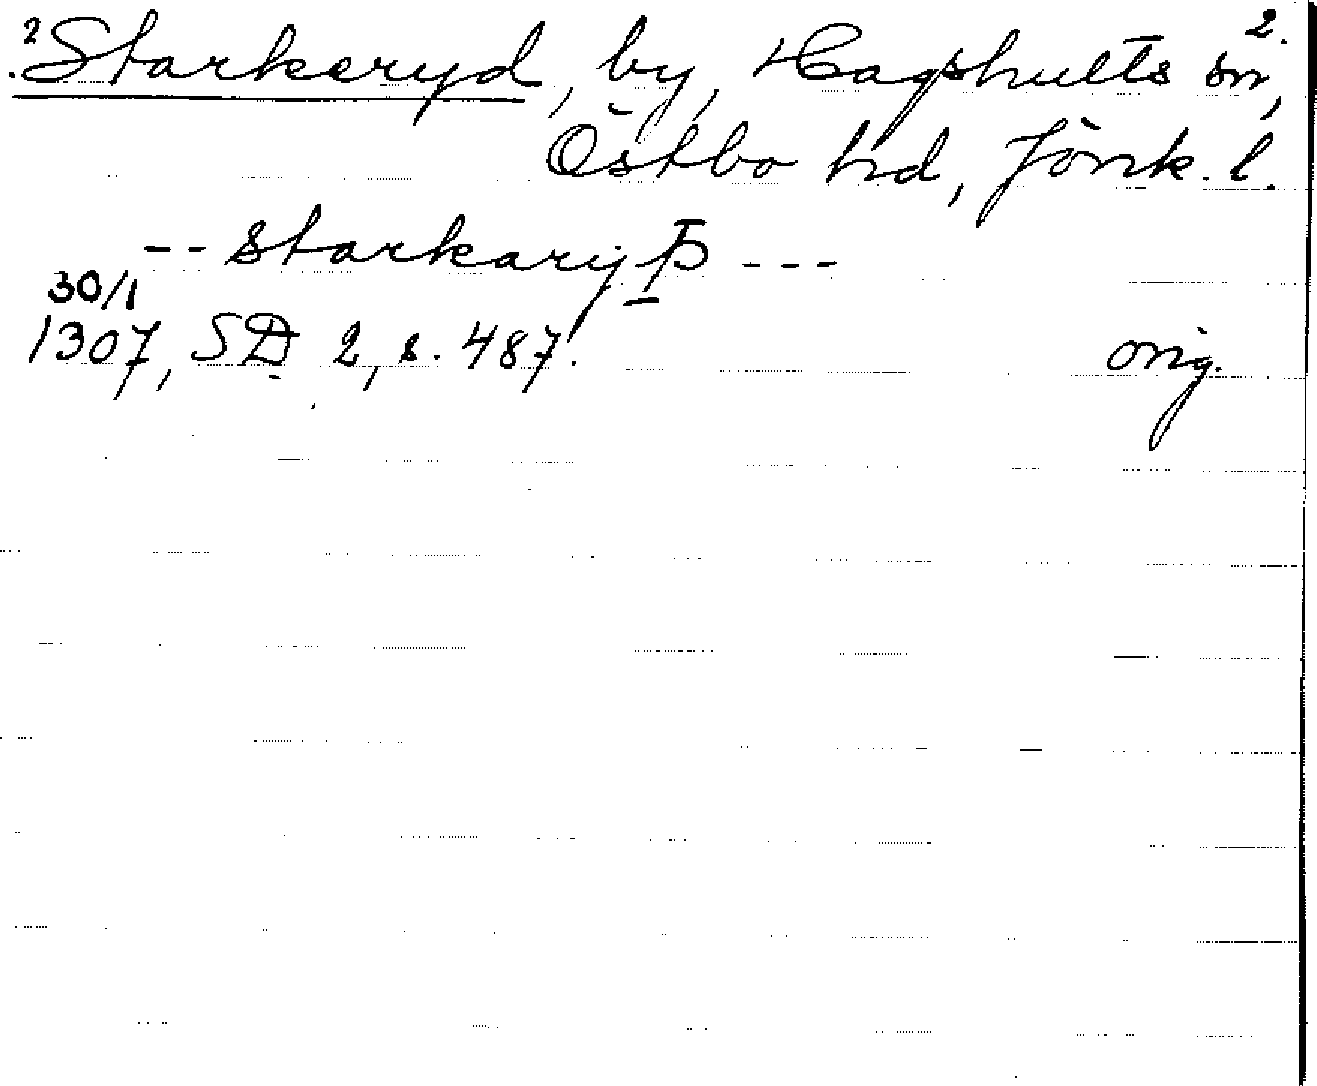 ? Starkeryd, by, Hagshults sn, 2.
Östbo hd, Jönk. l.
-- starkaryþ ---
30/1
1307, SD 2, s. 487. orig.